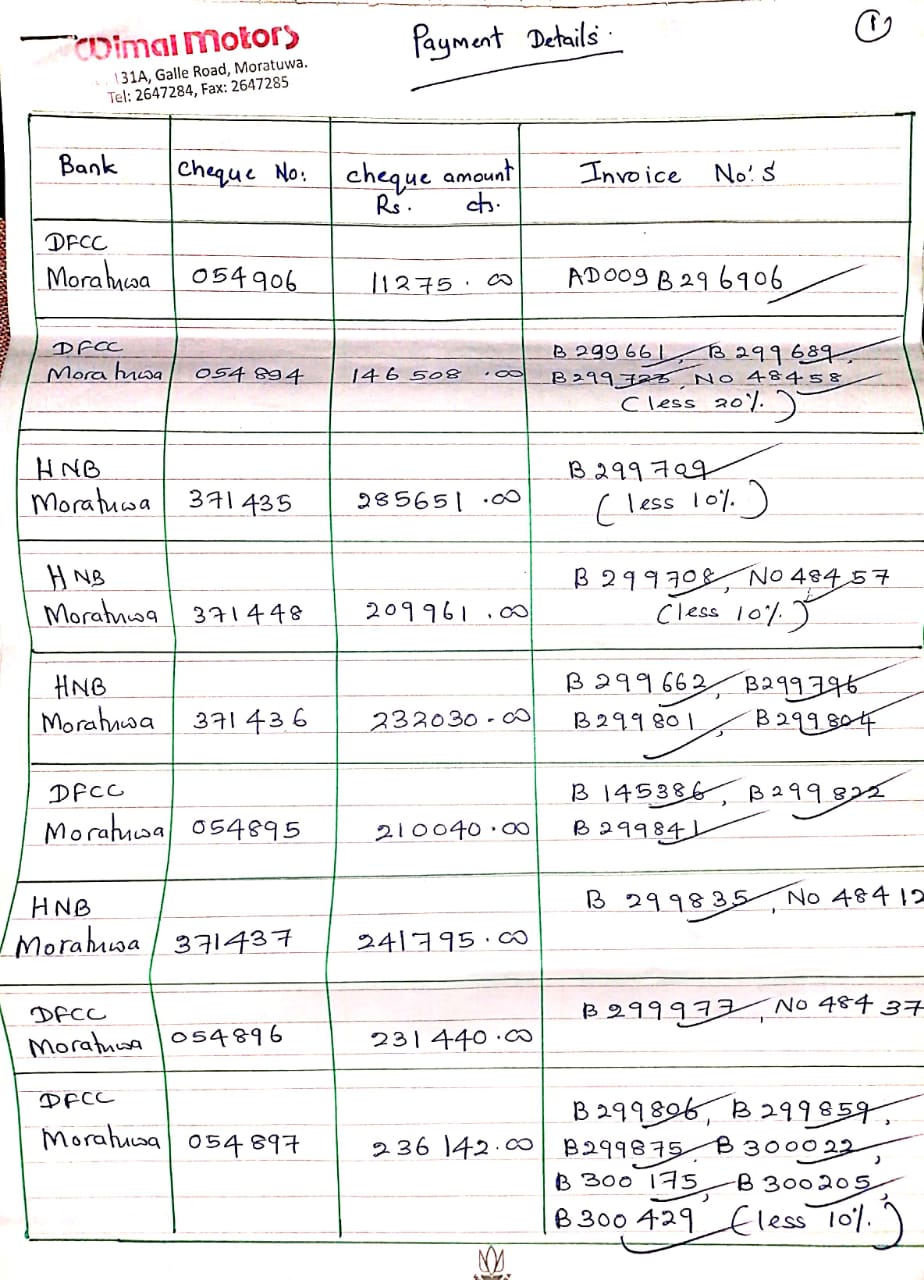 Wimal Motors
131A, Galle Road, Moratuwa.
Tel: 2647284, Fax: 2647285
Payment Details.
1
Bank Cheque No: cheque amount Invoice No's
Rs. cts.
DFCC
Moratuwa 054906 11275.00 AD009 B296906
DFCC B 299661, B 299689,
Moratuwa 054894 146508.00 B299723, No 48458
(less 20%)
HNB B 299709
Moratuwa 371435 285651.00 (less 10%)
HNB B 299708, No 48457
Moratuwa 371448 209961.00 (less 10%)
HNB B 299662, B299796
Moratuwa 371436 232030-00 B299801, B299804
DFCC B 145386, B299822
Moratuwa 054895 210040.00 B 299841
HNB B 299835, No 48412
Moratuwa 371437 241795.00
DFCC B299977, No 48437
Moratuwa 054896 231440.00
DFCC B299806, B299859,
Moratuwa 054897 236142.00 B299875, B300022,
B 300175, B300205,
B300429 (less 10%)